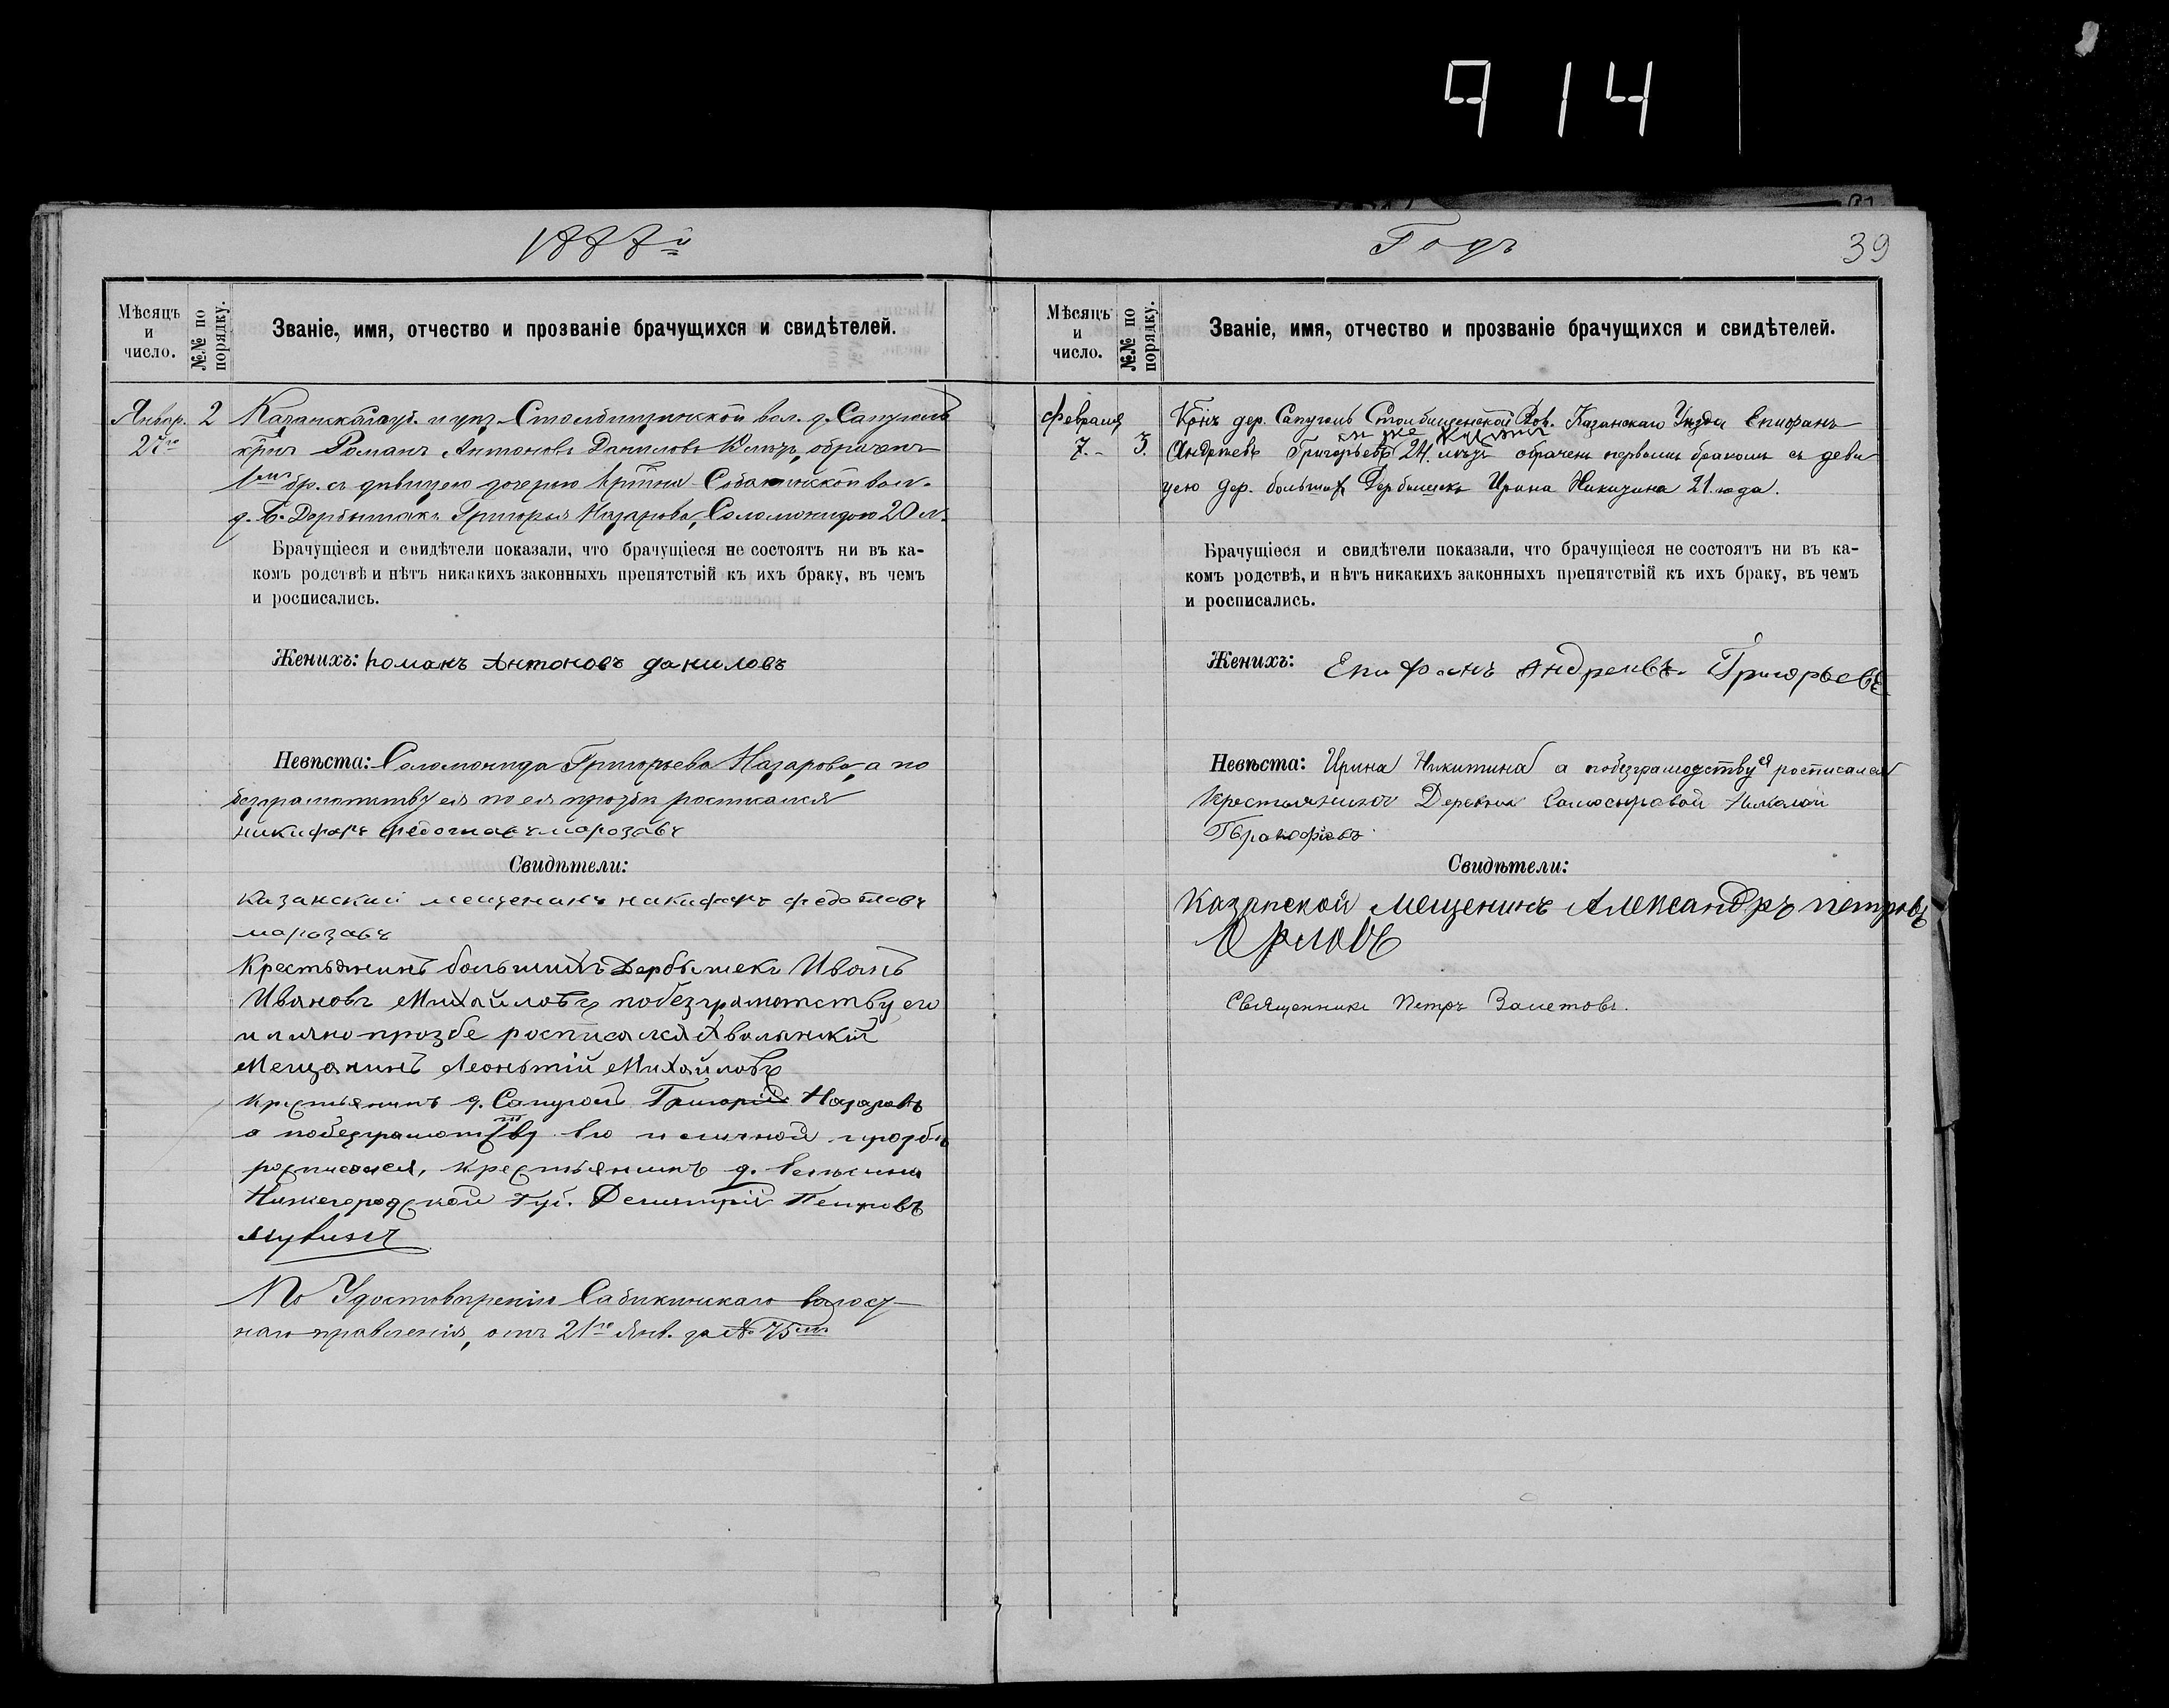 914
188
Годъ
39
Мѣсяцъ и число.
№.№ по порядку.
Званіе, имя, отчество и прозваніе брачущихся и свидѣтелей.
Январ. 2
27го
Казанской губ. и уѣз. Столбищинской вол. д. Сапуголь
крнъ Романъ Антоновъ Даниловъ обрачен
1мъ бр. съ дѣвицею дочерью кртина Собакинской вол.
д. Б. Дербышакъ Григорья Назарова, Соломонидою 20 л.
Брачущіеся и свидѣтели показали, что брачущіеся не состоятъ ни въ ка-
комъ родствѣ и нѣтъ никакихъ законныхъ препятствій къ ихъ браку, въ чемъ
и росписались.
Женихъ: Романъ Антоновъ даниловъ
Невѣста: Соломонида Григорьева Назарова, а по
безграмотству ея по ея прозбѣ росписался
никифаръ федотавъ марозавъ
Свидѣтели:
казанский мещенинъ никифаръ федотавъ
марозавъ
Крестьянинъ большихъ Дербышекъ Иванъ
Ивановъ Михайловъ побезграмотству его
илично прозбе росписался Хвалынскій
Мещанинъ Леоньтій Михайловъ
крестьянинъ д. Сапуголь Григорій Назаровъ
а побезграмотству его и личной прозбѣ
росписался, крестьянинъ д.
Нижегородской губ. Демитрій Петровъ
По Удостовѣренію Сабикинскаго волос-
наго правленія, отъ 21го Янв. за № 75мъ
Мѣсяцъ и число.
№.№ по порядку.
Званіе, имя, отчество и прозваніе брачущихся и свидѣтелей.
Февраля
7. 3.
Крнъ дер. Сапуголь Столбищенской Вол. Казанскаго Уѣзда Епифанъ
Андреевъ Григорьевъ 24. лѣтъ обраченъ первымъ бракомъ съ деви
цею дер. большихъ Дербышекъ Ирина Никитина 21. года.
Брачущіеся и свидѣтели показали, что брачущіеся не состоятъ ни въ ка-
комъ родствѣ, и нѣтъ никакихъ законныхъ препятствій къ ихъ браку, въ чемъ
и росписались.
Женихъ: Епифанъ Андреевъ Григорьевъ
Невѣста: Ирина Никитина а побезграмодству ея росписался
Крестьянинъ Деревни Самосыровой Николай
Пракофьевъ
Свидѣтели:
Казанской мещенинъ Александръ петровъ
Орловъ
Священникъ Петръ Заметовъ.